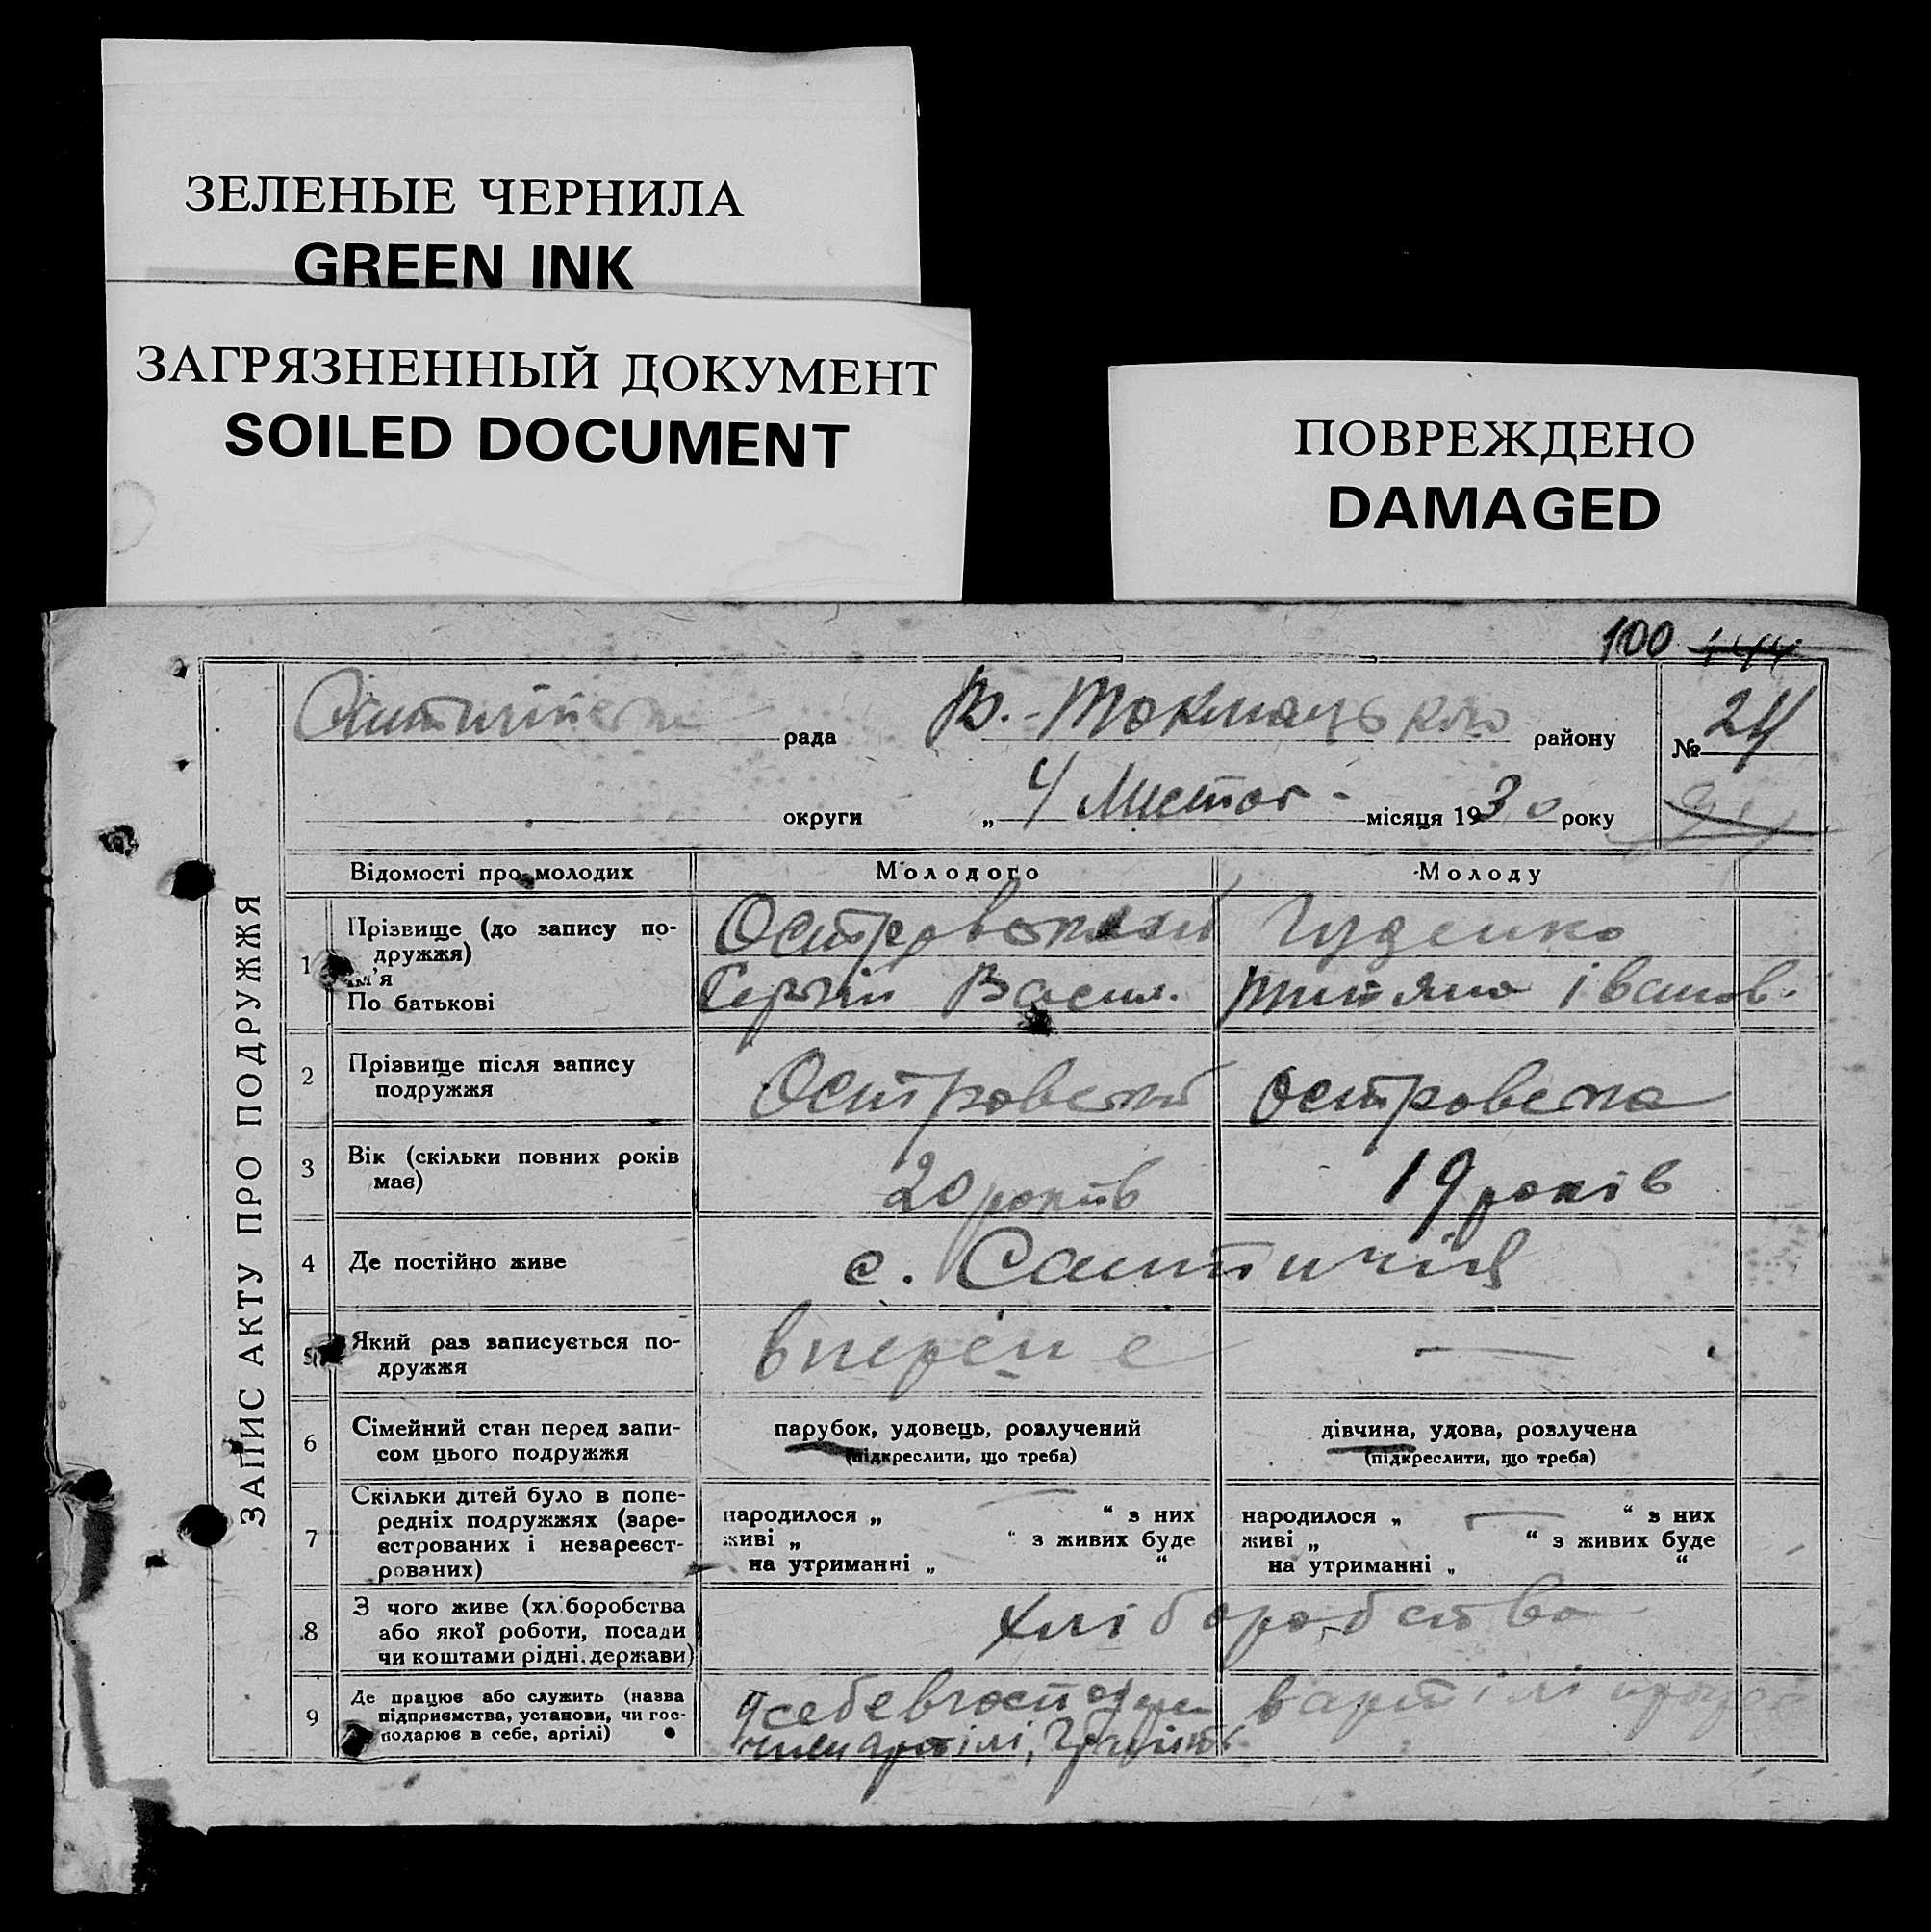 ЗЕЛЕНЫЕ ЧЕРНИЛА
GREEN INK
ЗАГРЯЗНЕННЫЙ ДОКУМЕНТ
SOILED DOCUMENT
ПОВРЕЖДЕНО
DAMAGED
100 144
рада В.-Токмацького району № 24
округи „ 4 Листоп - місяця 1930 року
ЗАПИС АКТУ ПРО ПОДРУЖЖЯ
Відомості про молодих Молодого Молоду
1 Прізвище (до запису по-
дружжя) Островський Гуденко
Ім'я
По батькові Сергій Васил. Титяна Іванов.
2 Прізвище після запису
подружжя Островський Островська
3 Вік (скільки повних років
має) 20 років 19 років
4 Де постійно живе с.
5 Який раз записується по-
дружжя вперше —
6 Сімейний стан перед запи-
сом цього подружжя
парубок, удовець, розлучений дівчина, удова, розлучена
(підкреслити, що треба) (підкреслити, що треба)
7 Скільки дітей було в попе-
редніх подружжях (заре-
єстрованих і незареєст-
рованих)
народилося „ — “ з них народилося „ — “ з них
живі „ “ з живих буде живі „ “ з живих буде
на утриманні „ “ на утриманні „ “
8 З чого живе (хліборобства
або якої роботи, посади
чи коштами рідні, держави) хліборобство
9 Де працює або служить (назва
підприємства, установи, чи гос-
подарює в себе, артілі)
у себе в господар в артілі
член артілі,